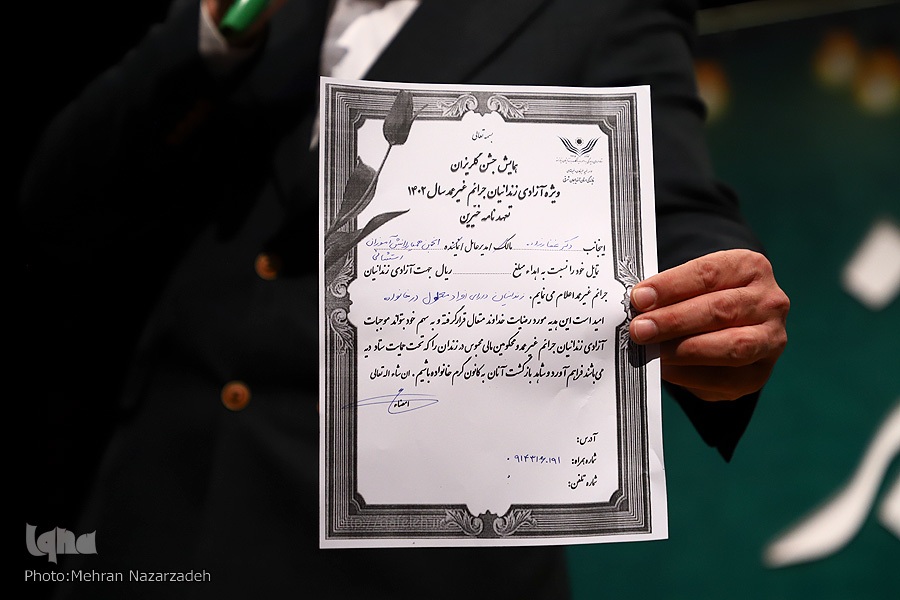 بسمه تعالی
همایش جشن گلریزان
ویژه آزادی زندانیان جرائم غیر عمد سال ۱۴۰۲
تعهد نامه خیرین
اینجانب دکتر مالک / مدیرعامل / نماینده انجمن
تمایل خود را نسبت به اهداء مبلغ ریال جهت آزادی زندانیان
جرائم غیر عمد اعلام می نمایم. زندانیان دارای اولاد معلول در خانواده
امید است این هدیه مورد رضایت خداوند متعال قرار گرفته و به سهم خود بتواند موجبات
آزادی زندانیان جرائم غیر عمد و محکومین مالی محبوس در زندان را که تحت حمایت ستاد دیه
می باشند فراهم آورد و شاهد بازگشت آنان به کانون گرم خانواده باشیم. ان شاء اله تعالی
امضاء
آدرس:
شماره همراه:
شماره تلفن:
iqna
Photo:Mehran Nazarzadeh